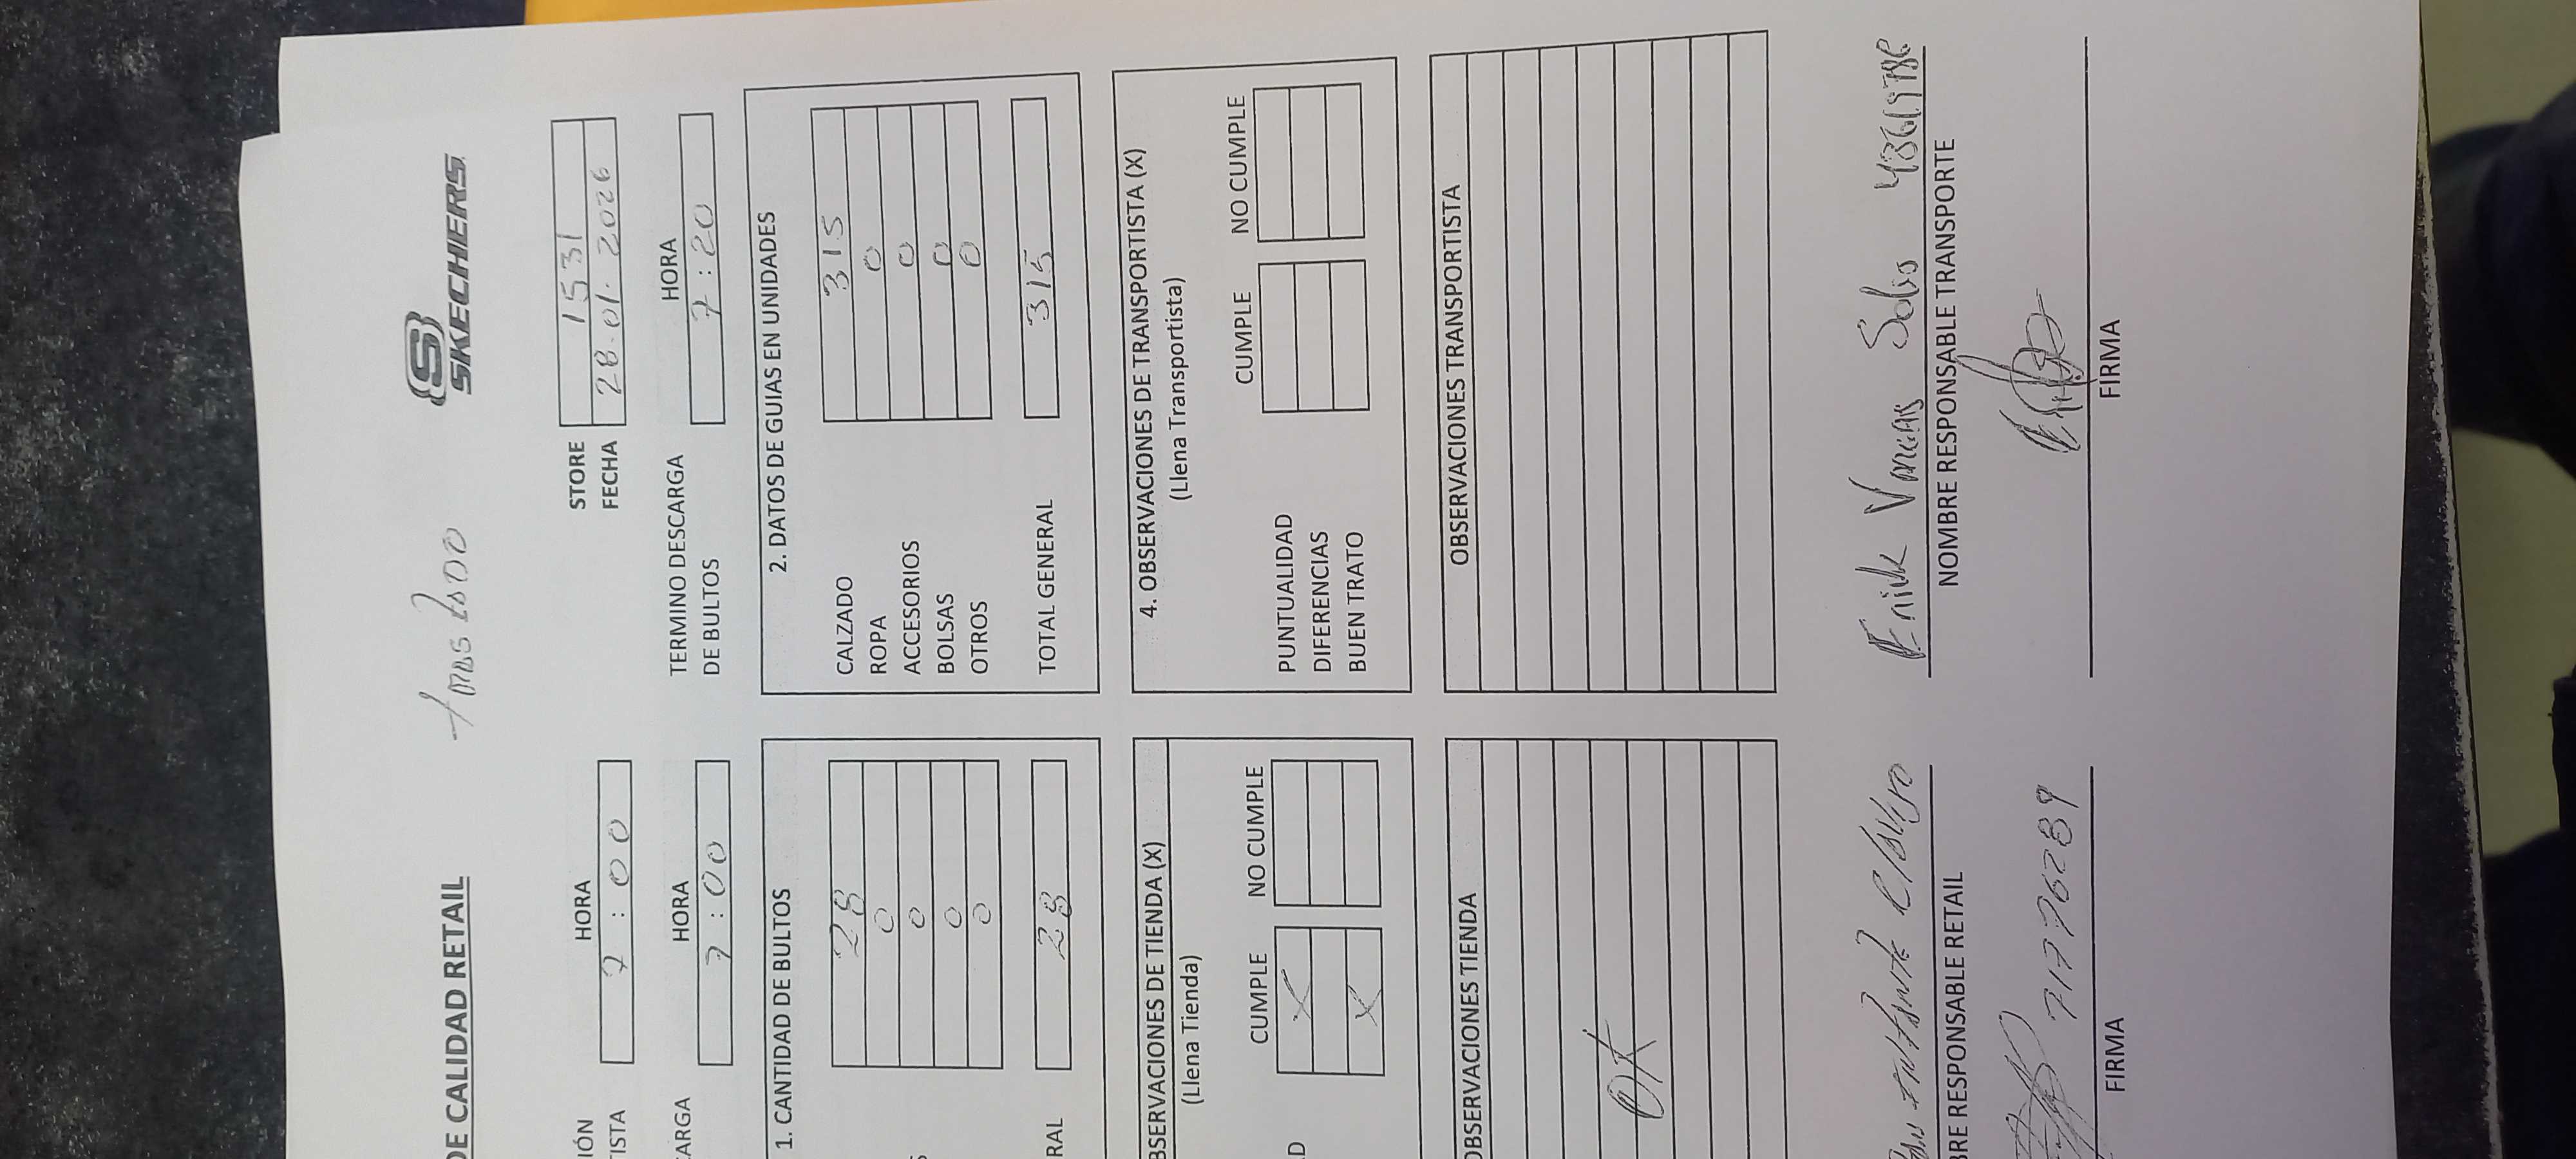 DE CALIDAD RETAIL
SKECHERS
STORE 1531
FECHA 28.01.2026
IÓN
TISTA
HORA
7:00
ARGA
HORA
7:00
TERMINO DESCARGA
DE BULTOS
HORA
7:20
1. CANTIDAD DE BULTOS
28
0
0
0
0
RAL 28
2. DATOS DE GUIAS EN UNIDADES
CALZADO 315
ROPA 0
ACCESORIOS 0
BOLSAS 0
OTROS 0
TOTAL GENERAL 315
BSERVACIONES DE TIENDA (X)
(Llena Tienda)
CUMPLE NO CUMPLE
X
D X
4. OBSERVACIONES DE TRANSPORTISTA (X)
(Llena Transportista)
CUMPLE NO CUMPLE
PUNTUALIDAD
DIFERENCIAS
BUEN TRATO
OBSERVACIONES TIENDA
OK
OBSERVACIONES TRANSPORTISTA
BRE RESPONSABLE RETAIL
71776289
FIRMA
Solis
NOMBRE RESPONSABLE TRANSPORTE
FIRMA